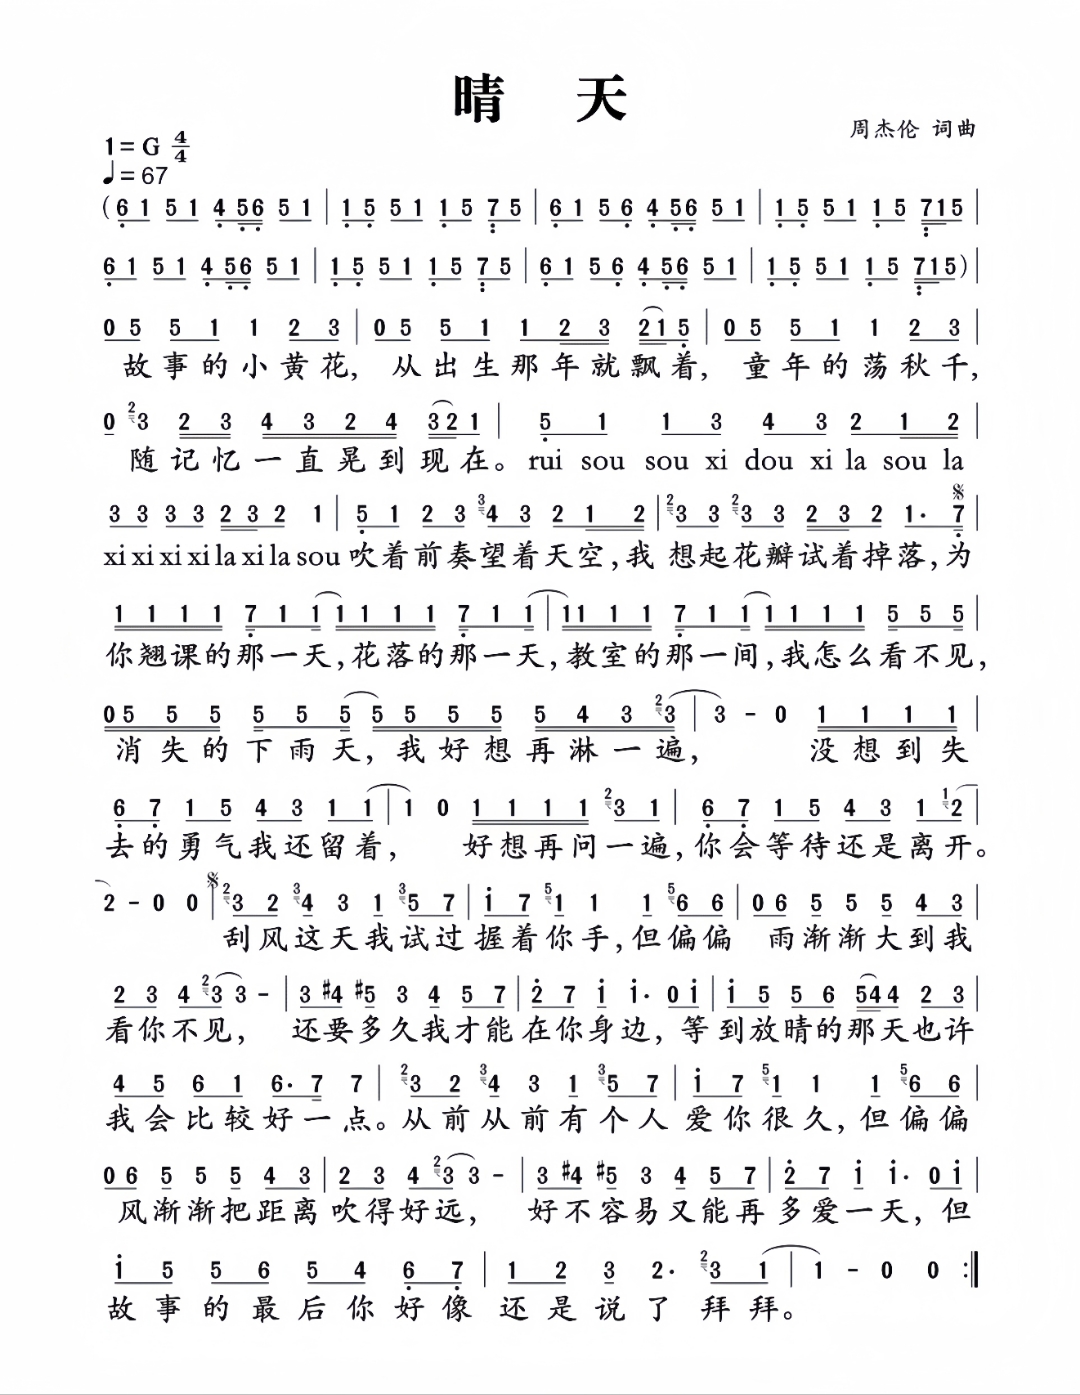 晴 天
周杰伦 词曲
1=G 4/4
♩=67
(6 1 5 1 4 56 5 1 | 1 5 5 1 1 5 7 5 | 6 1 5 6 4 56 5 1 | 1 5 5 1 1 5 715 |
6 1 5 1 4 56 5 1 | 1 5 5 1 1 5 7 5 | 6 1 5 6 4 56 5 1 | 1 5 5 1 1 5 715) |
0 5 5 1 1 2 3 | 0 5 5 1 1 2 3 21 5 | 0 5 5 1 1 2 3 |
故事的小黄花, 从出生那年就飘着, 童年的荡秋千,
0 2 3 2 3 4 3 2 4 3 2 1 | 5 1 1 3 4 3 2 1 2 |
随记忆一直晃到现在。rui sou sou xi dou xi la sou la
3 3 3 3 2 3 2 1 | 5 1 2 3 3 4 3 2 1 2 | 2 3 3 2 3 3 2 3 2 1· 7 |
xi xi xi xi la xi la sou 吹着前奏望着天空,我 想起花瓣试着掉落,为
1 1 1 1 7 1 1 1 1 1 1 7 1 1 | 11 1 1 7 1 1 1 1 1 1 5 5 5 |
你翘课的那一天,花落的那一天,教室的那一间,我怎么看不见,
0 5 5 5 5 5 5 5 5 5 5 5 4 3 2 3 | 3 - 0 1 1 1 1 |
消失的下雨天,我好想再淋一遍, 没想到失
6 7 1 5 4 3 1 1 | 1 0 1 1 1 1 2 3 1 | 6 7 1 5 4 3 1 1 2 |
去的勇气我还留着, 好想再问一遍,你会等待还是离开。
2 - 0 0 | 2 3 2 3 4 3 1 3 5 7 | 1 7 5 1 1 1 5 6 6 | 0 6 5 5 5 4 3 |
刮风这天我试过握着你手,但偏偏 雨渐渐大到我
2 3 4 2 3 3 - | 3 #4 #5 3 4 5 7 | 2 7 1 1· 0 1 | 1 5 5 6 544 2 3 |
看你不见, 还要多久我才能在你身边,等到放晴的那天也许
4 5 6 1 6· 7 7 | 2 3 2 3 4 3 1 3 5 7 | 1 7 5 1 1 1 5 6 6 |
我会比较好一点。从前从前有个人爱你很久,但偏偏
0 6 5 5 5 4 3 | 2 3 4 2 3 3 - | 3 #4 #5 3 4 5 7 | 2 7 1 1· 0 1 |
风渐渐把距离吹得好远, 好不容易又能再多爱一天,但
1 5 5 6 5 4 6 7 | 1 2 3 2· 2 3 1 | 1 - 0 0 :|
故事的最后你好像还是说了拜拜。